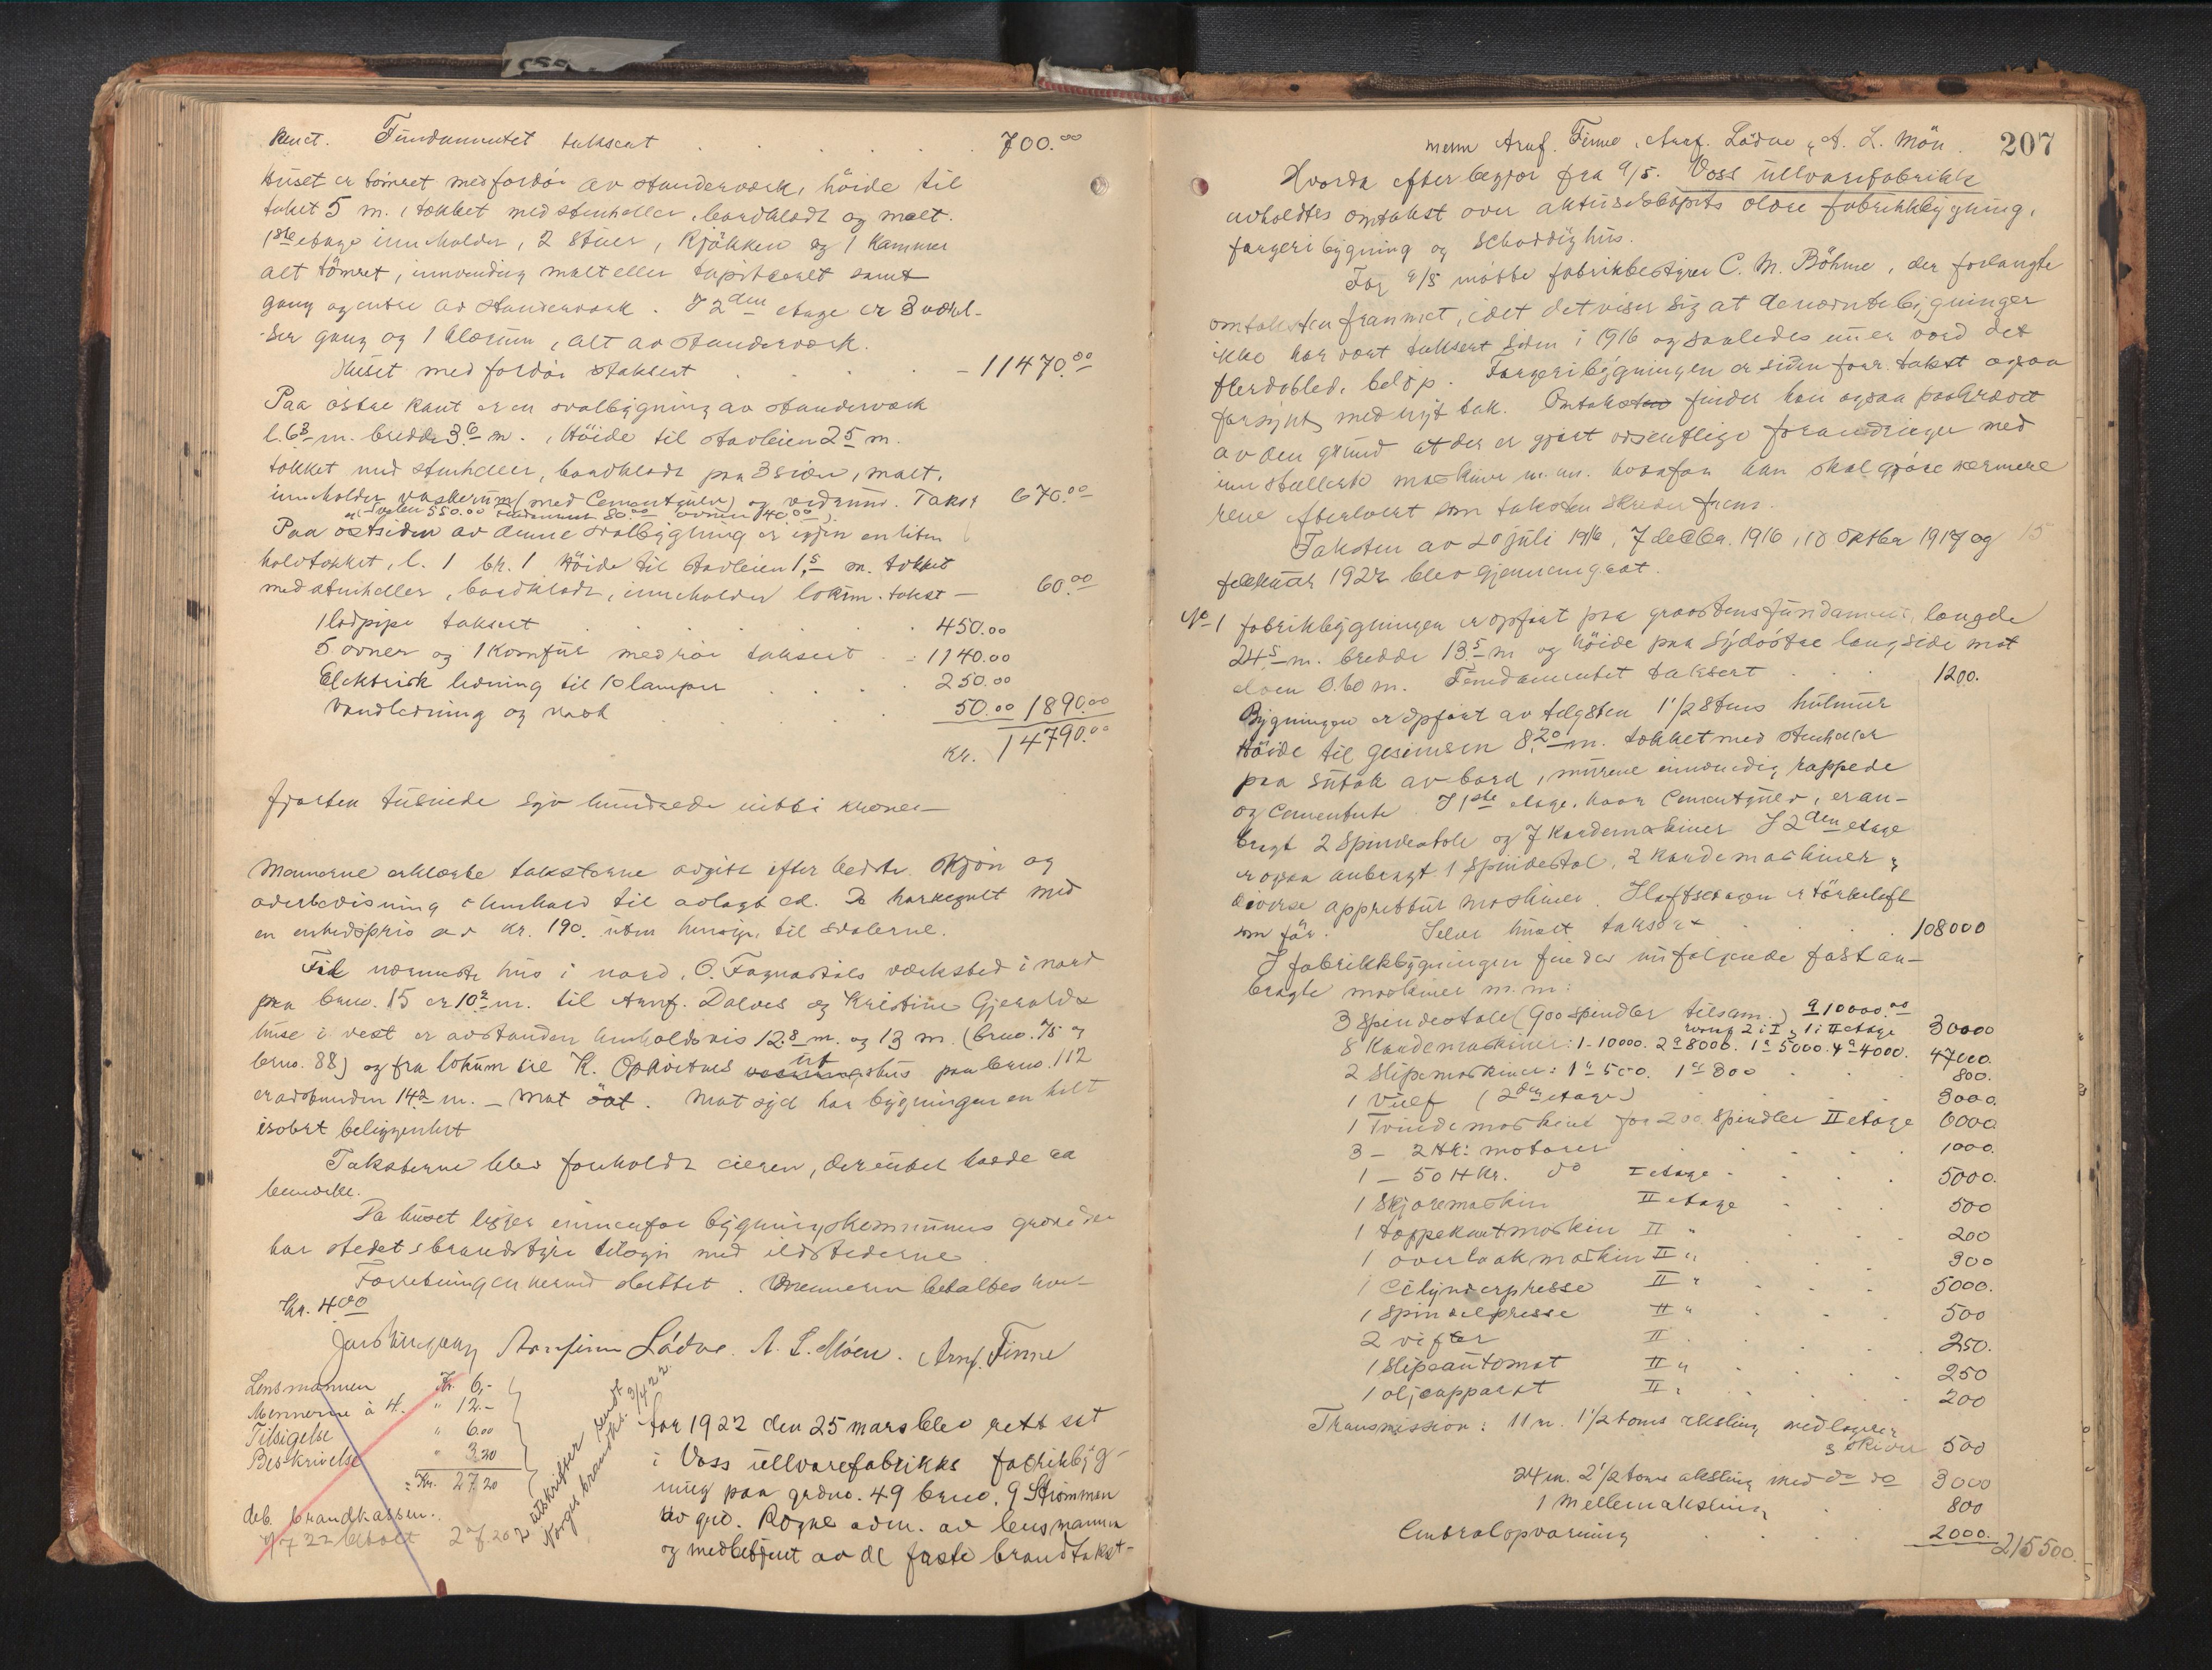 kuct. Fundamentet taksert 700.00
Huset er tømret med fordør av standerverk, høide til
taket 5 m. tækket med stenheller, bordklædt og malt.
1ste etage inneholder, 2 stuer, kjøkken og 1 kammer
alt tømret, innvendig malt eller tapitseret samt
gang og entre av standerverk. I 2den etage er 3 værel-
ser gang og 1 klærum, alt av standerverk.
Huset med fordør taksert - 11470.00
Paa østre kant er en svalbygning av standerverk
l. 6.3 m. bredde 3.6 m. Høide til stavleien 2.5 m.
tækket med stenheller, bordklædt paa 3 sider, malt,
inneholder vaskerum (med Cementgulv) og vedrum. Takst 670.00
svalen 550.00 Fundament 80.00 ovnen 40.00)
Paa østsiden av denne svalbygning er igjen en liten
halvtækket, l. 1 br. 1 Høide til stavleien 1.5 m. tækket
med stenheller, bordklædt, inneholder lokum. takst - 60.00
1 lødpipe taksert 450.00
5 ovner og 1 komfur med rør taksert - 1140.00
Elektrisk ledning til 10 lamper 250.00
Vandledning og vask 50.00 1890.00
Kr. 14790.00
fjorten tusinde syv hundrede nitti kroner
Mennerne erklærte taksterne avgitt efter bedste skjøn og
overbevisning i henhold til avlagt ed. De har regnet med
en enhedspris av kr. 190. uten hensyn til svalerne.
Til nærmeste hus i nord, O. Fagnastøls verksted i nord
paa brno. 15 er 10.2 m. til Arnf. Dolves og Kristine Gjeralds
huse i vest er avstanden henholdsvis 12.8 m. og 13 m. (brno. 75 og
brno. 88) og fra lokum til K. Opkvitnes uthus paa brno. 112
er avstanden 14.2 m. - mot øst. Mot syd har bygningen en helt
isolert beliggenhet
Taksterne blev foreholdt eieren, der intet hadde at
bemerke.
Da huset ligger innenfor bygningskommunens grænser
har stedets brandstyre tilsyn med ildstederne
Forretningen hermed sluttet. Mennerne betaltes hver
Kr. 4.00
Arnfinn Lødve. A. L. Møen. Arnf. Finne
Lensmannen Kr. 6,-
Mennerne à 4. " 12.-
Tilsigelse " 6.00
Beskrivelse " 3.20
= Kr. 27.20
deb. brandkassen.
4/7 22 betalt 27.20
2 utskrifter sendt
Norges brandk. 3/4 22.
Aar 1922 den 25 mars blev rett sat
i Voss ullvarefabrikks fabrikbyg-
ning paa grdno. 49 brno. 9 Strømmen
av grd. Rogne adm. av lensmannen
og medbetjent av de faste brandtakst-
207
menn Arnf. Finne, Arnf. Lødve & A. L. Møn.
Hvorda efter begjær fra a/s. Voss ullvarefabrikk
avholdtes omtakst over aktieselskapets ældre fabrikkbygning,
fargeribygning og Schoddyhus.
For a/s møtte fabrikbestyrer C. M. Böhme, der forlangte
omtaksten fremmet, idet det viser sig at de nævnte bygninger
ikke har vært taksert siden i 1916 og saaledes nu er værd det
flerdobbled. beløp. Fargeribygningen er siden forr. takst ogsaa
forsynt med nyt tak. Omtakst finder han ogsaa paakrævet
av den grund at der er gjort væsentlige forandringer med
innstallerte maskiner m.m. hvorfor han skal gjøre nærmere
rede eftersom taksten skrider frem.
Taksten av 20 juli 1916, 7 decbr. 1916, 10 oktbr 1917 og 15
februar 1922 blev gjennemgaat.
No 1 fabrikbygningen er opført paa graastensfundament, længde
24.5 m. bredde 13.5 m og høide paa sydøstre langside mot
elven 0.60 m. Fundamentet taksert 1200.
Bygningen er opført av teglsten 1 1/2 stens hulmur
Høide til gesimsen 8.20 m. tækket med stenheller
paa sutak av bord, murene innvendig rappede
og cementerte. I 1ste etage, hvor Cementgulv, er an-
bragt 2 spindestole og 7 Kardemaskiner I 2den etage
er ogsaa anbragt 1 spindestol, 2 kardemaskiner &
diverse apprettur maskiner. I loftsetagen er tørkeloft
som før. Selve huset taksert 108000
I fabrikkbygningen findes nu følgende fast an-
bragte maskiner m.m:
3 spindestole (900 spindler tilsam.) à 10000.00
hvorav 2 i I & 1 i II etage 30000
8 Kardemaskiner: 1 - 10000. 2 à 8000. 1 à 5000. 4 à 4000. 47000.
2 slipemaskiner: 1 à 500. 1 à 300 800.
1 Vulf (2den etage) 3000.
1 Tvindemaskine for 200 spindler II etage 6000
3 - 2 Hk: motorer 1000.
1 - 50 H Kr. do I etage 5000.
1 Skjæremaskin II etage 500
1 tæppekantmaskin II " 200
1 overlaakmaskin II " 300
1 Cylinderpresse II " 5000.
1 spindelpresse II " 500
2 vifter II 250.
1 slipeautomat II " 250
1 oljeapparat II " 200
Transmission: 11 m. 1 1/2 toms aksling med lagerer
& skiver 500
24 m. 2 1/2 toms aksling med do do 3000
1 Mellemaksling 800
Centralopvarming 2000. 215500.